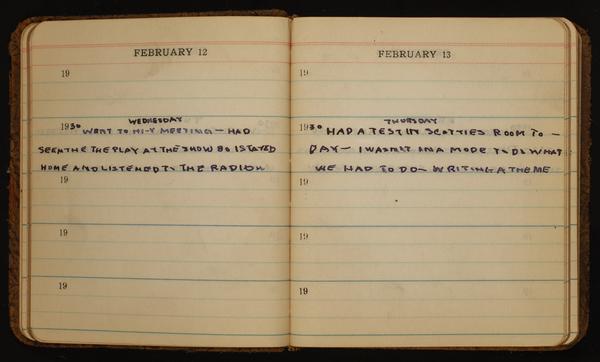 FEBRUARY 12
19
WEDNESDAY
1930 WENT TO HI-Y MEETING - HAD
SEEN THE THE PLAY AT THE SHOW SO I STAYED
HOME AND LISTENED TO THE RADIO
19
19
19
FEBRUARY 13
19
THURSDAY
1930 HAD A TEST IN SCOTTIES ROOM TO -
DAY - I WASN'T IN A MODE TO DO WHAT
WE HAD TO DO - WRITING A THEME
19
19
19